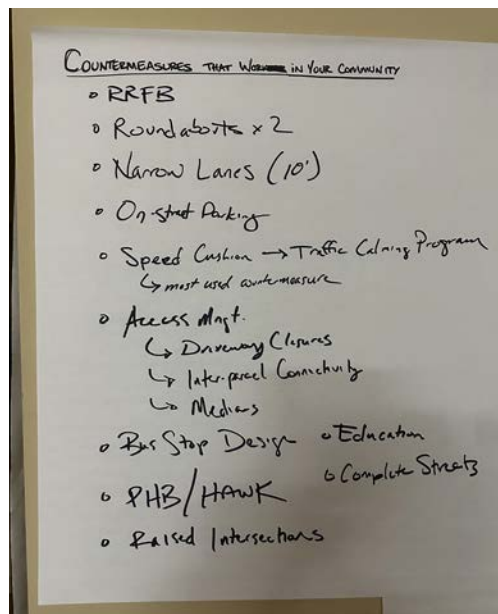 COUNTERMEASURES THAT WORK IN YOUR COMMUNITY
• RRFB
• Roundabouts x 2
• Narrow Lanes (10')
• On-street Parking
• Speed Cushion → Traffic Calming Program
↳ most used countermeasure
• Access Mngt.
↳ Driveway Closures
↳ Inter-parcel Connectivity
↳ Medians
• Bus Stop Design
• Education
• Complete Streets
• PHB/HAWK
• Raised Intersections